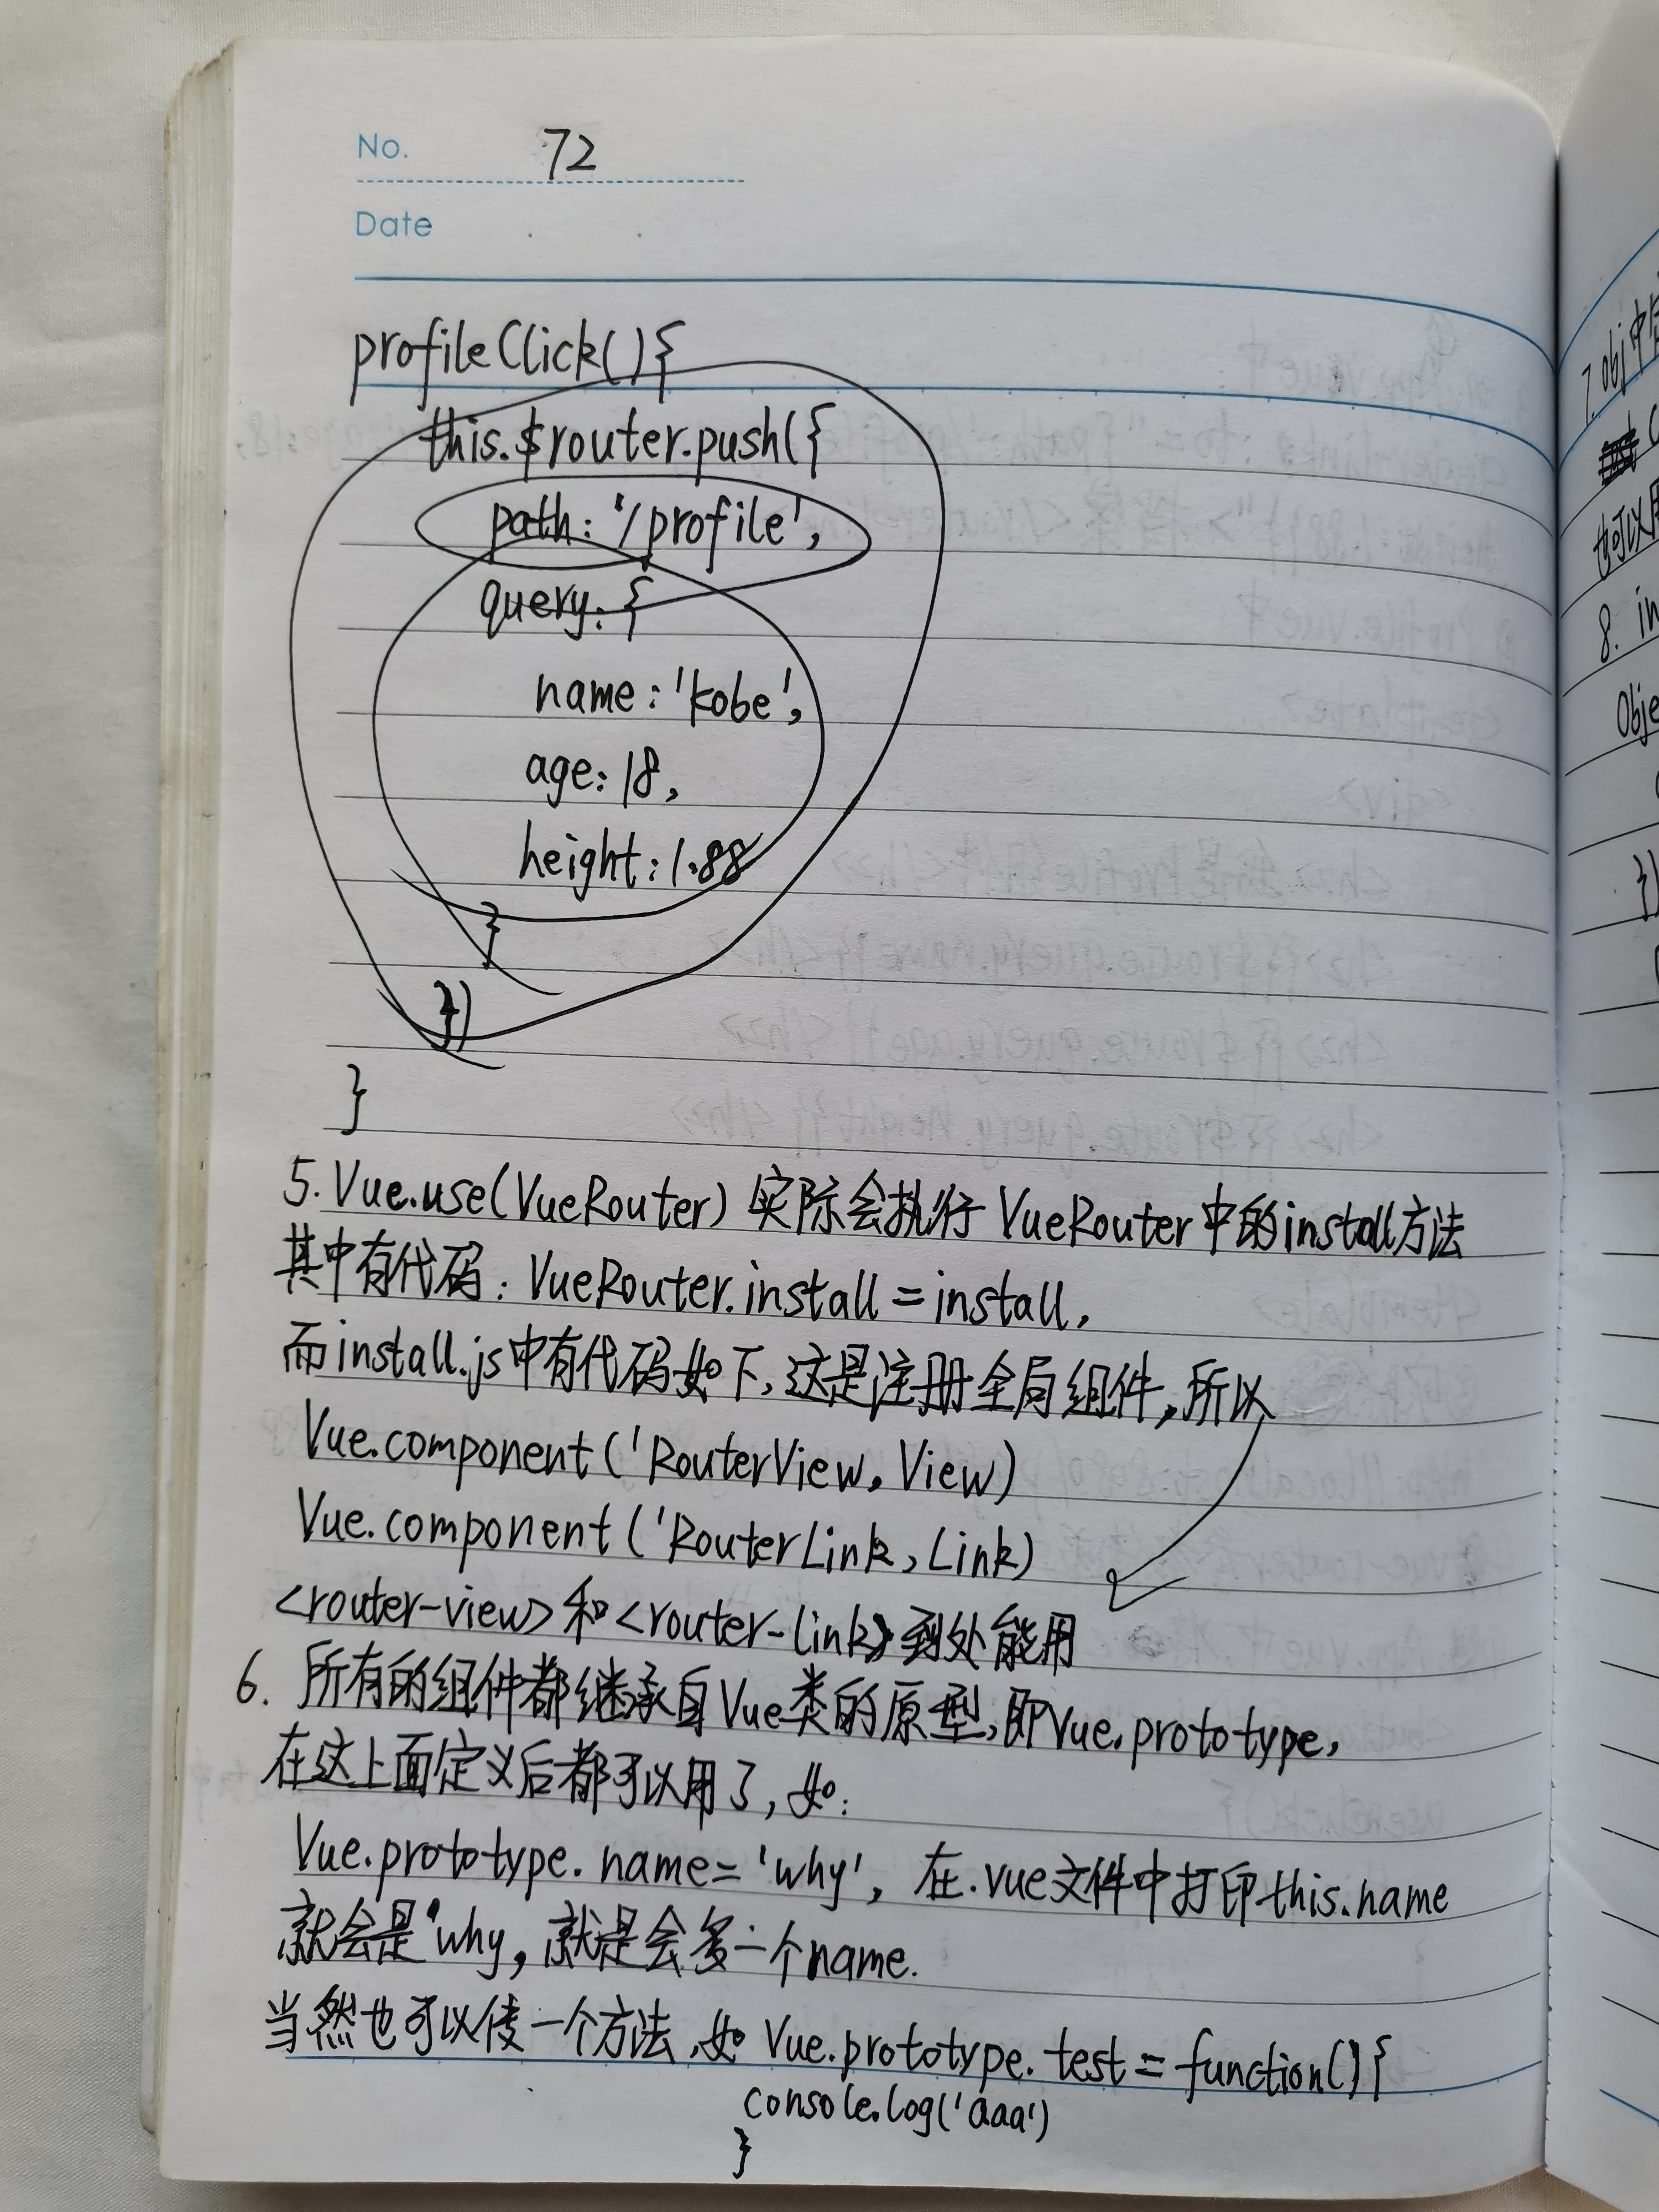 No. 72
Date . .
profileClick(){
this.$router.push({
path: '/profile',
query: {
name: 'kobe',
age: 18,
height: 1.88
}
})
}
5. Vue.use(VueRouter) 实际会执行 VueRouter中的install方法
其中有代码: VueRouter.install = install,
而install.js中有代码如下,这是注册全局组件,所以
Vue.component('RouterView, View)
Vue.component('RouterLink, Link)
<router-view>和<router-link>到处能用
6. 所有的组件都继承自Vue类的原型,即Vue.prototype,
在这上面定义后都可以用了,如:
Vue.prototype.name='why', 在.vue文件中打印this.name
就会是'why,就是会多一个name.
当然也可以传一个方法,如 Vue.prototype.test = function(){
console.log('aaa')
}
7. obj中
也可以用
8. in
Obje
})